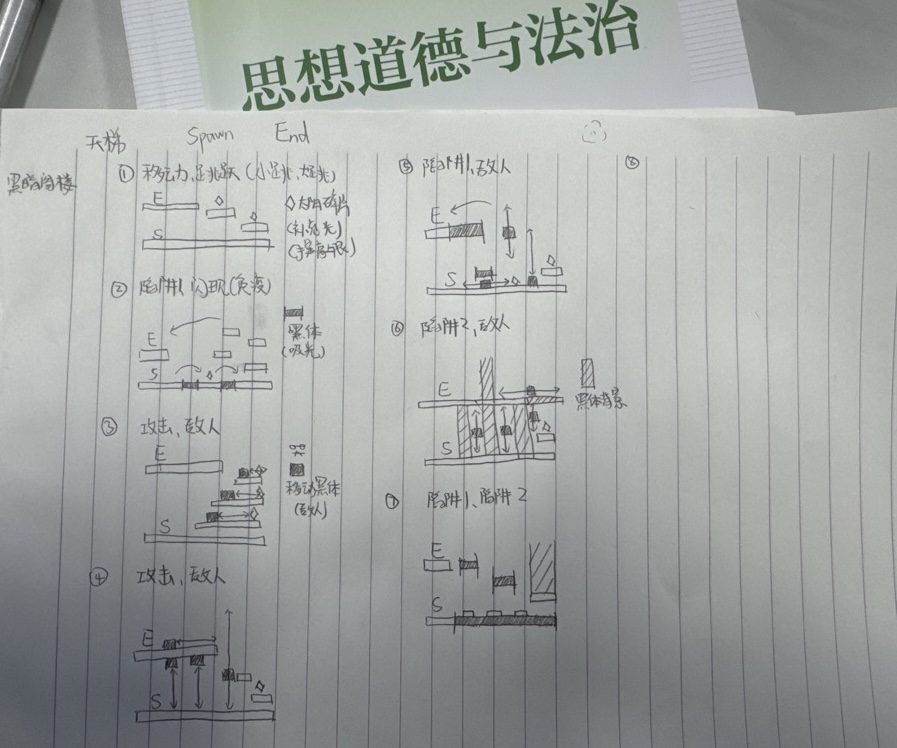 思想道德与法治
天梯 Spawn End
黑暗阁楼
① 移动,跳跃(小跳,大跳)
E
S
◇太阳碎片
② 陷阱1,闪现(免疫)
E
S
黑体
(吸光)
③ 攻击,敌人
E
S
移动黑体
(敌人)
④ 攻击,敌人
E
S
⑤ 陷阱1,敌人
E
S
⑥ 陷阱2,敌人
E
S
黑体背景
⑦ 陷阱1、陷阱2
E
S
⑧